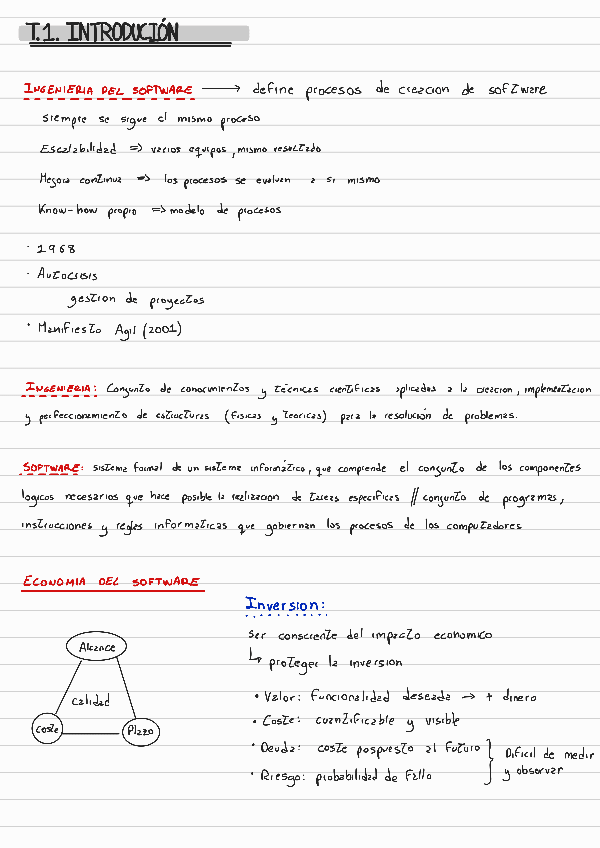 T.1. INTRODUCIÓN
INGENIERIA DEL SOFTWARE ⟶ define procesos de creacion de software
siempre se sigue el mismo proceso
Escalabilidad => varios equipos, mismo resultado
Mejora continua => los procesos se evaluan a si mismo
Know-how propio => modelo de procesos
· 1968
· Autocrisis
gestion de proyectos
· Manifiesto Agil (2001)
INGENIERIA: Conjunto de conocimientos y técnicas cientificas aplicadas a la creacion, implementacion
y perfeccionamiento de estructuras (fisicas y teoricas) para la resolución de problemas.
SOFTWARE: sistema formal de un sistema informático, que comprende el conjunto de los componentes
logicos necesarios que hace posible la realizacion de tareas especificas // conjunto de programas,
instrucciones y reglas informaticas que gobiernan los procesos de los computadores
ECONOMIA DEL SOFTWARE
Inversion:
Alcance
calidad
coste
Plazo
Ser consciente del impacto economico
↳ proteger la inversion
• Valor: funcionalidad deseada → + dinero
• Coste: cuantificable y visible
• Deuda: coste pospuesto al futuro
• Riesgo: probabilidad de fallo
} Dificil de medir
y observar